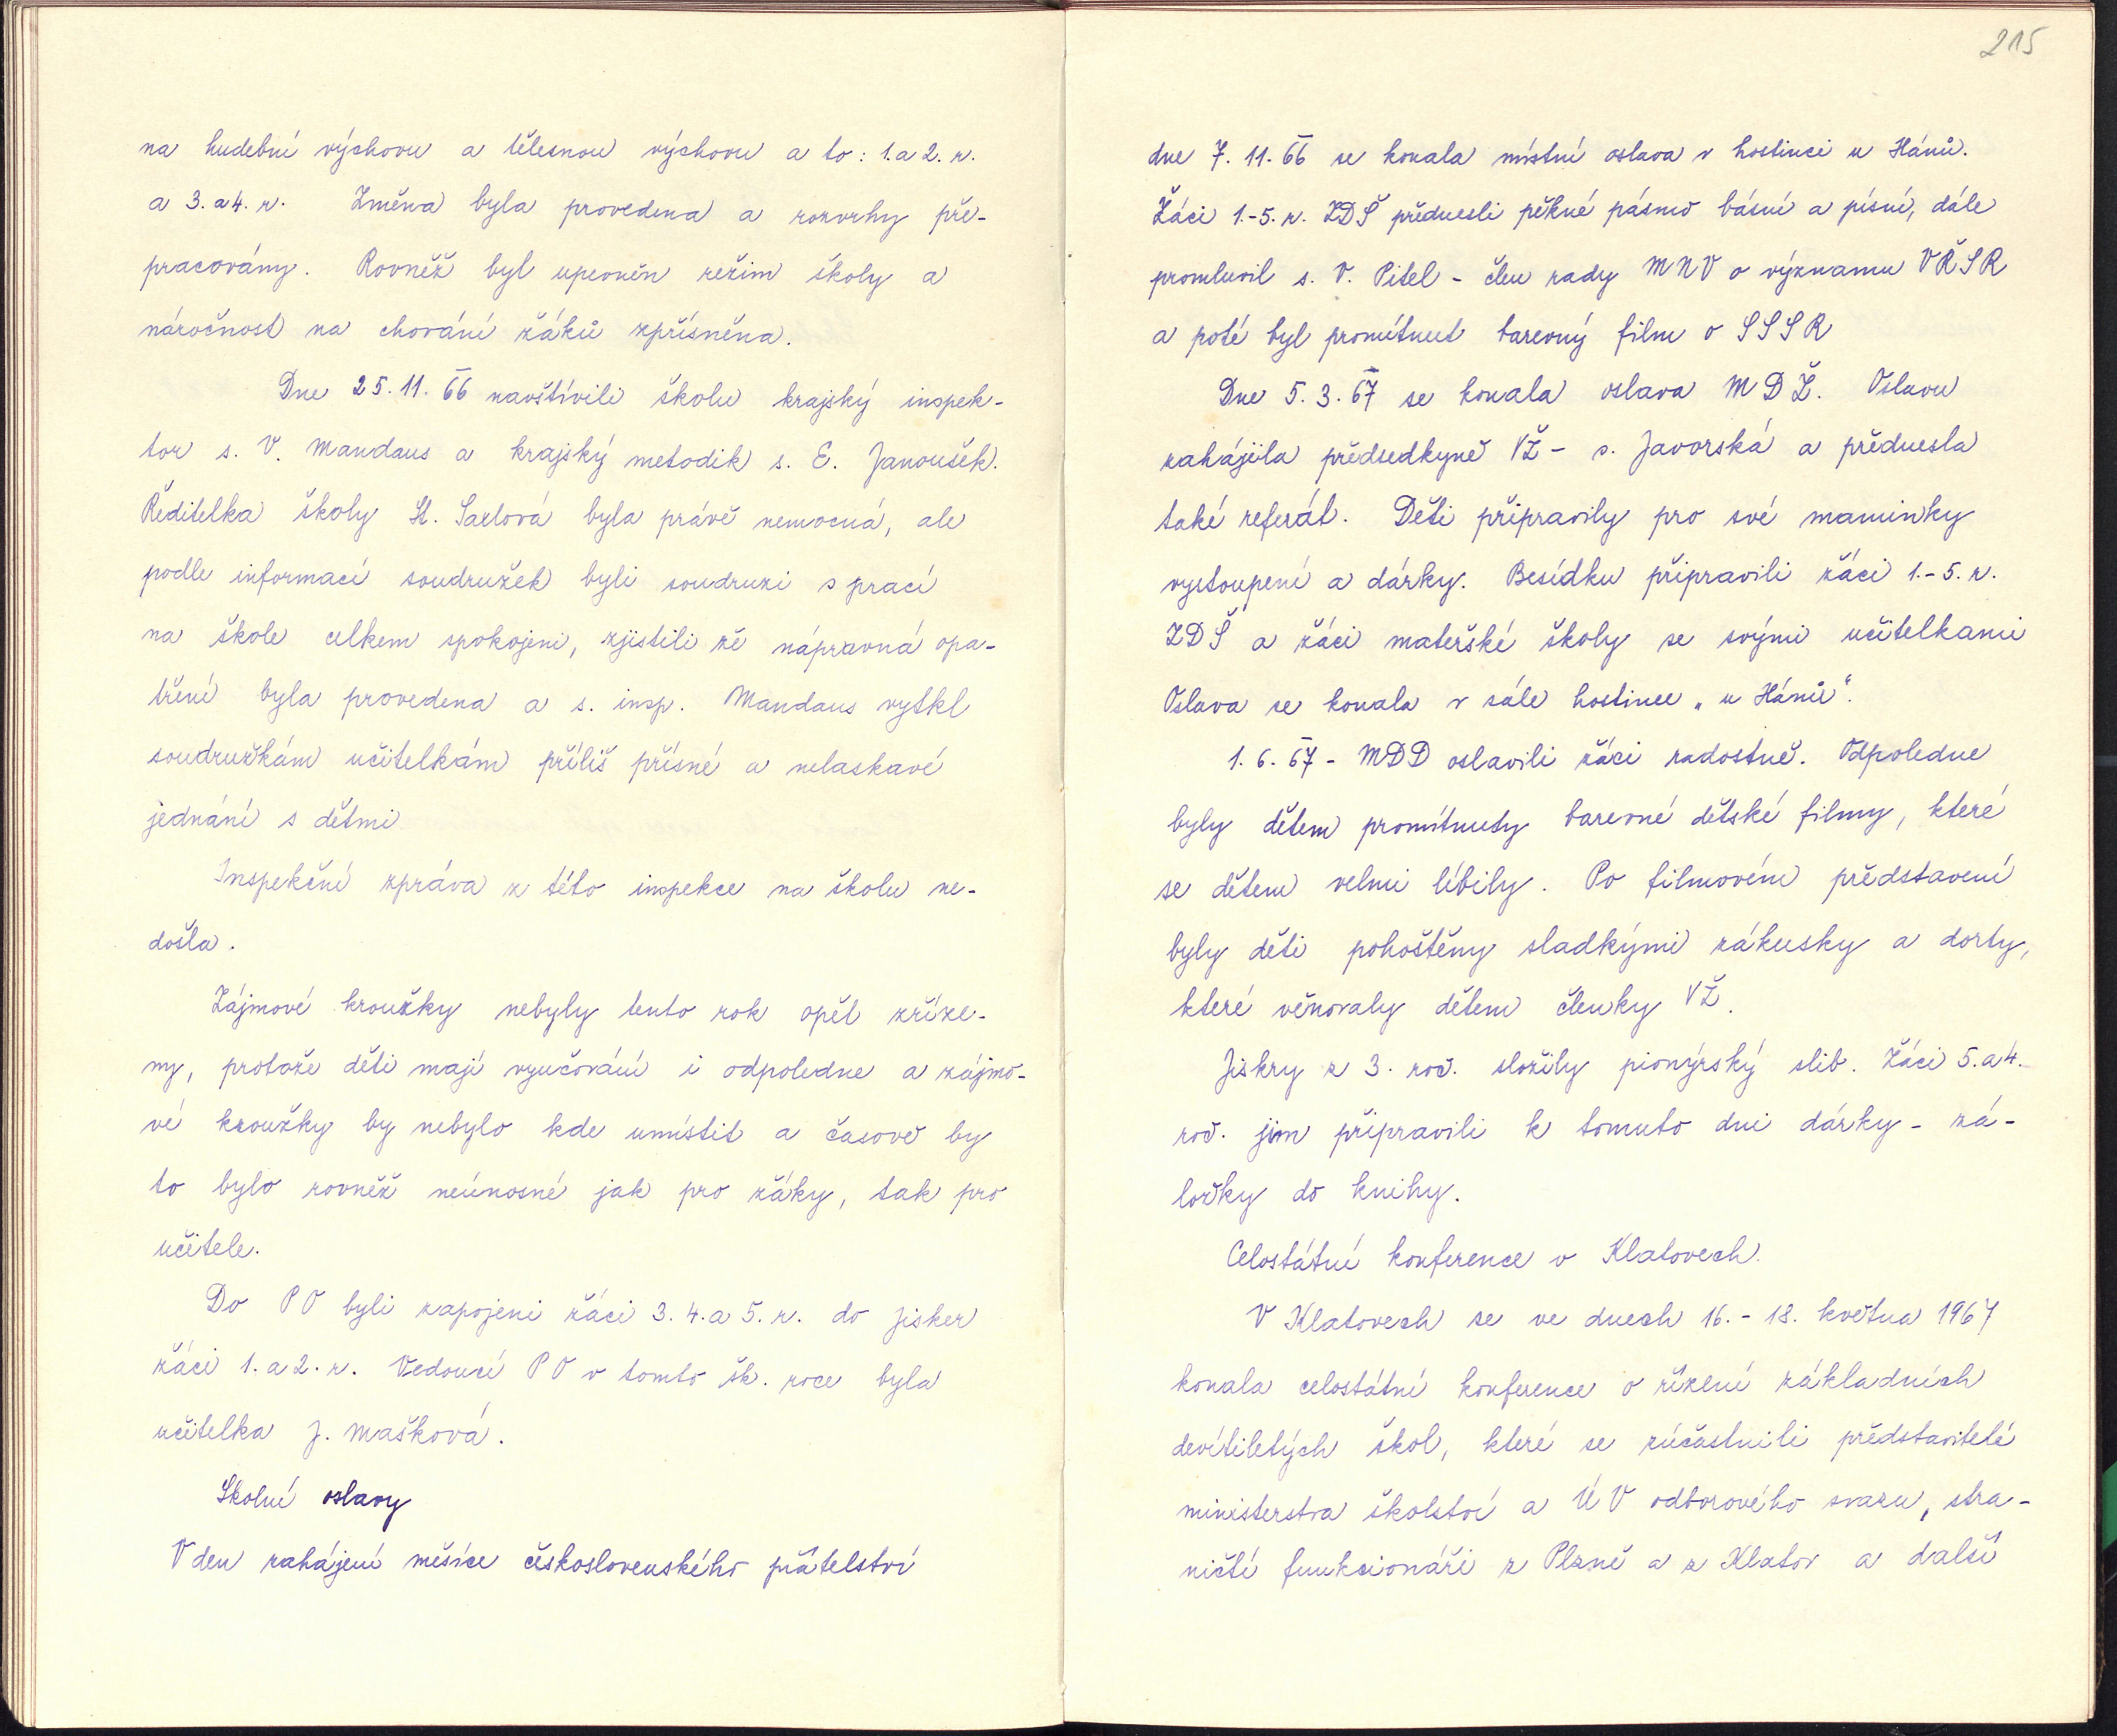 na hudební výchovu a tělesnou výchovu a to: 1. a 2. r.
a 3. a 4. r. Změna byla provedena a rozvrhy pře-
pracovány. Rovněž byl upevněn režim školy a
náročnost na chování žáků zpřísněna.
Dne 25. 11. 66 navštívili školu krajský inspek-
tor s. V. Mandaus a krajský metodik s. E. Janoušek.
Ředitelka školy St. Saxlová byla právě nemocná, ale
podle informací soudružek byli soudruzi s prací
na škole celkem spokojeni, zjistili že nápravná opa-
tření byla provedena a s. insp. Mandaus vytkl
soudružkám učitelkám příliš přísné a nelaskavé
jednání s dětmi
Inspekční zpráva z této inspekce na školu ne-
došla.
Zájmové kroužky nebyly tento rok opět zříze-
ny, protože děti mají vyučování i odpoledne a zájmo-
vé kroužky by nebylo kde umístit a časově by
to bylo rovněž neúnosné jak pro žáky, tak pro
učitele.
Do PO byli zapojeni žáci 3. 4. a 5. r. do Jisker
žáci 1. a 2. r. Vedoucí PO v tomto šk. roce byla
učitelka J. Mašková.
Školní oslavy
V den zahájení měsíce československého přátelství
215
dne 7. 11. 66 se konala místní oslava v hostinci u Hánů.
Žáci 1.-5. r. ZDŠ přednesli pěkné pásmo básní a písní, dále
promluvil s. V. Pitel - člen rady MNV o významu VŘSR
a poté byl promítnut barevný film o SSSR
Dne 5. 3. 67 se konala oslava MDŽ. Oslavu
zahájila předsedkyně VŽ - s. Javorská a přednesla
také referát. Děti připravily pro své maminky
vystoupení a dárky. Besídku připravili žáci 1.-5. r.
ZDŠ a žáci mateřské školy se svými učitelkami
Oslava se konala v sále hostince „u Hánů".
1. 6. 67 - MDD oslavili žáci radostně. Odpoledne
byly dětem promítnuty barevné dětské filmy, které
se dětem velmi líbily. Po filmovém představení
byly děti pohoštěny sladkými zákusky a dorty,
které věnovaly dětem členky VŽ.
Jiskry z 3. roč. složily pionýrský slib. Žáci 5. a 4.
roč. jim připravili k tomuto dni dárky - zá-
ložky do knihy.
Celostátní konference v Klatovech.
V Klatovech se ve dnech 16. - 18. května 1967
konala celostátní konference o řízení základních
devítiletých škol, které se zúčastnili představitelé
ministerstva školství a ÚV odborového svazu, stra-
ničtí funkcionáři z Plzně a z Klatov a další